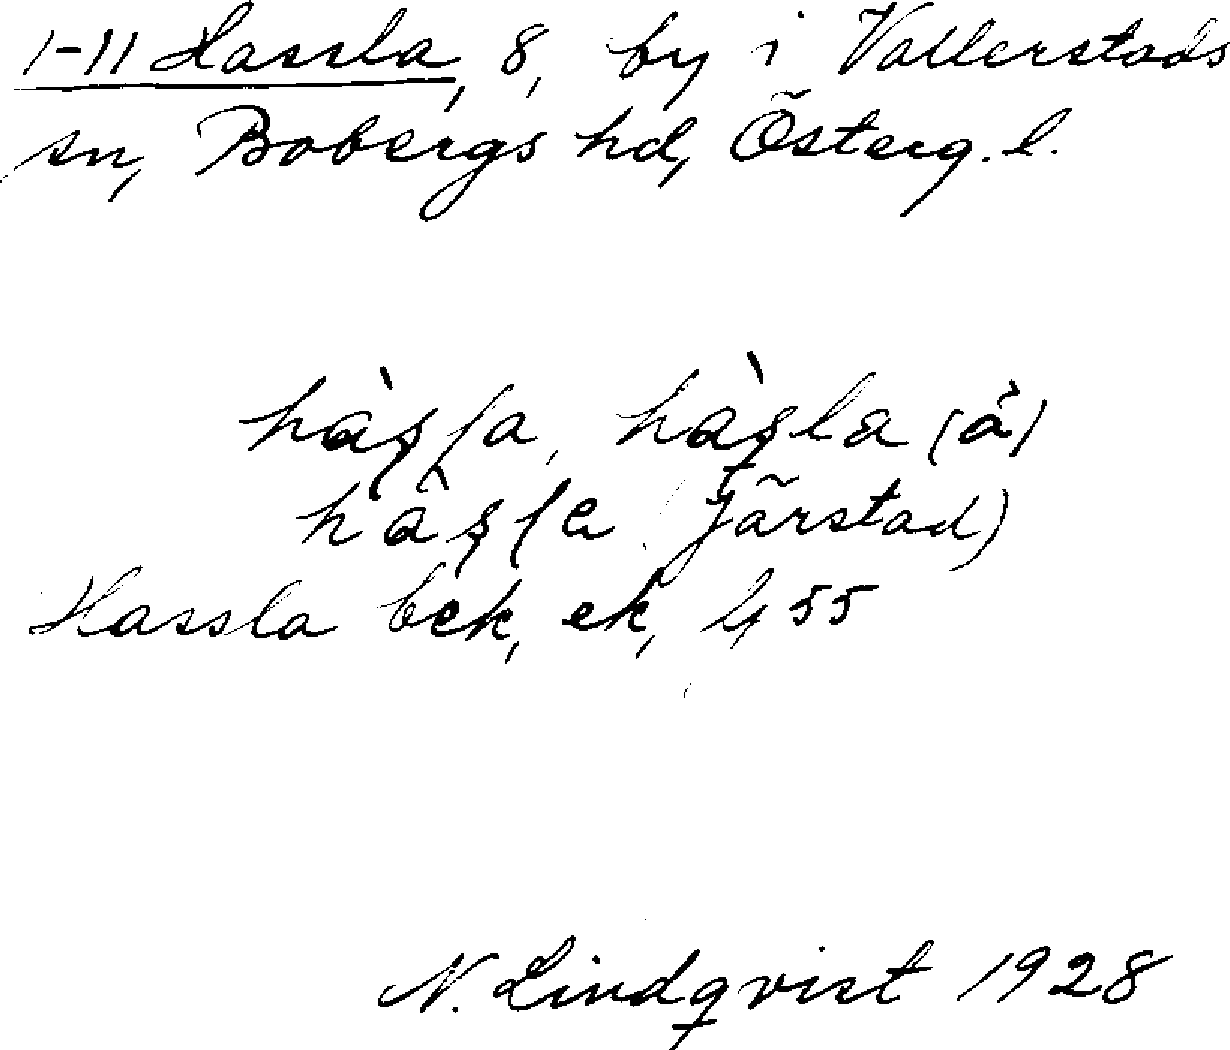 1-11 Hassla, 8, by i Vallerstads
sn, Bobergs hd, Österg. l.
hàʂʃa, hàʂla (à)
hàʂʃa (Järstad)
Hassla bek, ek, G 55
N. Lindqvist 1928